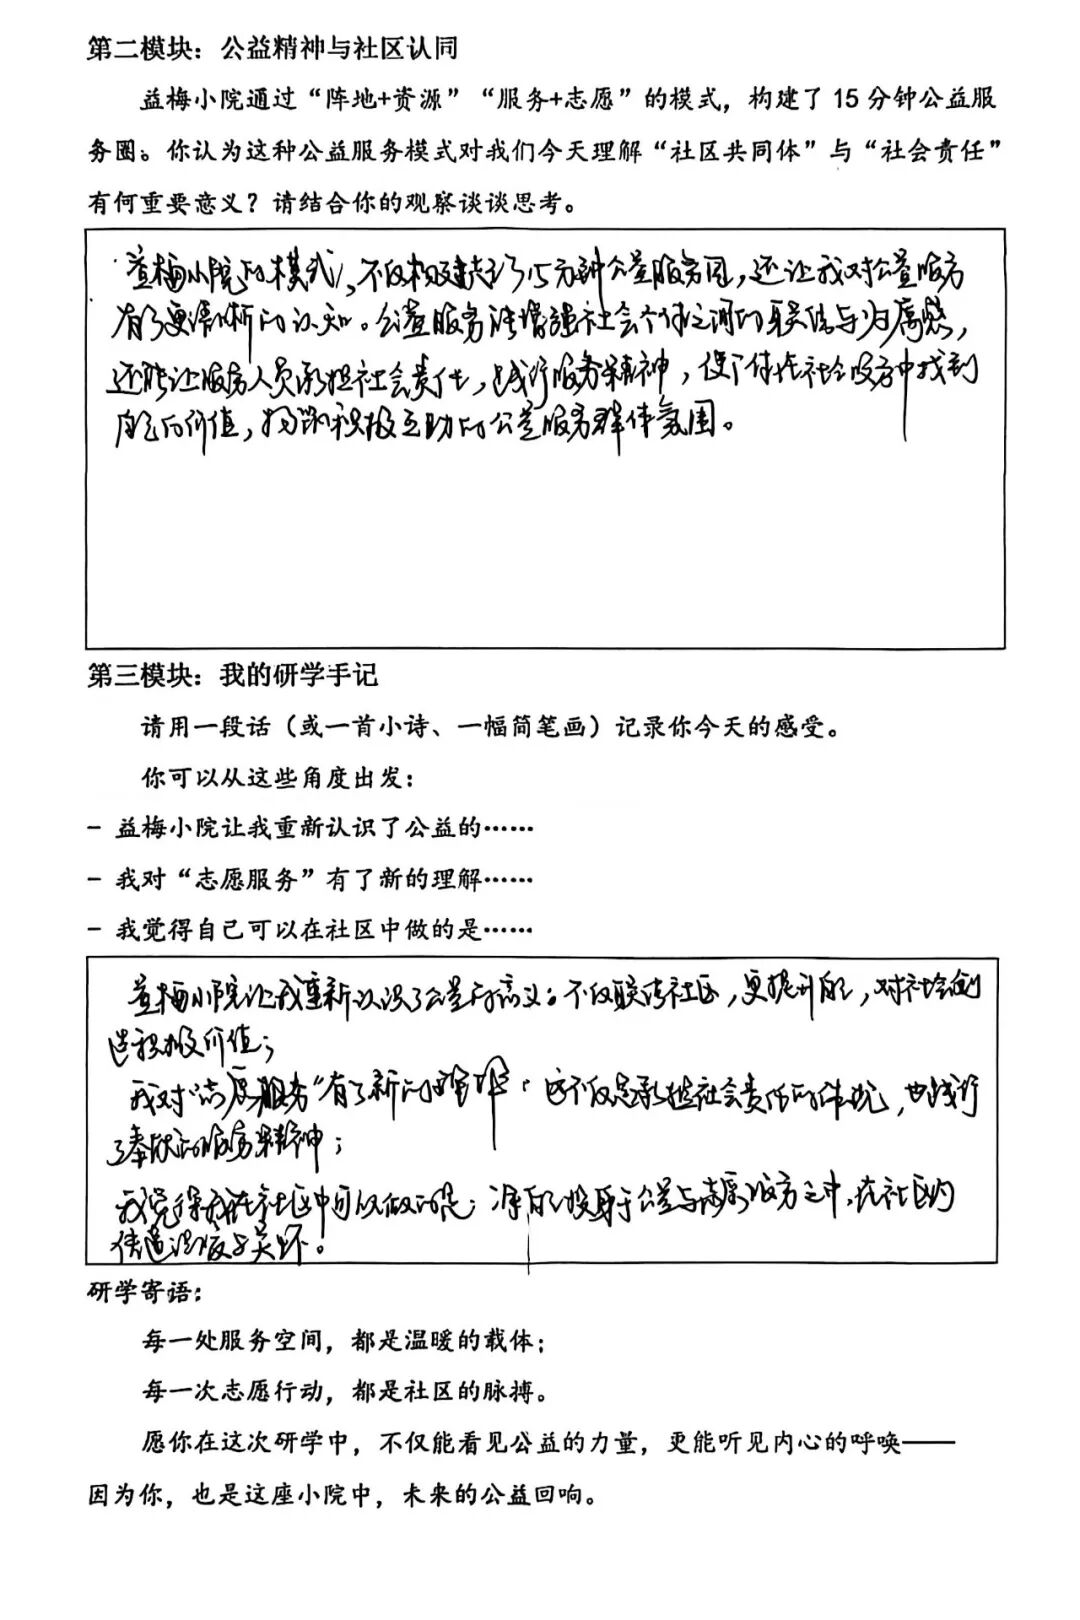 第二模块：公益精神与社区认同
益梅小院通过“阵地+资源”“服务+志愿”的模式，构建了 15 分钟公益服
务圈。你认为这种公益服务模式对我们今天理解“社区共同体”与“社会责任”
有何重要意义？请结合你的观察谈谈思考。
益梅小院的模式，不仅构建起了15分钟公益服务圈，还让我对公益服务
有了更清晰的认知。公益服务能增强社会个体之间的联结与归属感，
还能让服务人员承担社会责任，践行服务精神，使个体在社会服务中找到
自己的价值，积极互助的公益服务群体氛围。
第三模块：我的研学手记
请用一段话（或一首小诗、一幅简笔画）记录你今天的感受。
你可以从这些角度出发：
– 益梅小院让我重新认识了公益的……
– 我对“志愿服务”有了新的理解……
– 我觉得自己可以在社区中做的是……
益梅小院让我重新认识了公益的意义：不仅联结社区，更提升自己，对社会创
造积极价值；
我对“志愿服务”有了新的理解：这不仅是承担社会责任的体现，也践行
了奉献的服务精神；
我觉得我在社区中可以做的是：将自己投身于公益与志愿服务之中，在社区内
传递温度与关怀。
研学寄语：
每一处服务空间，都是温暖的载体；
每一次志愿行动，都是社区的脉搏。
愿你在这次研学中，不仅能看见公益的力量，更能听见内心的呼唤——
因为你，也是这座小院中，未来的公益回响。